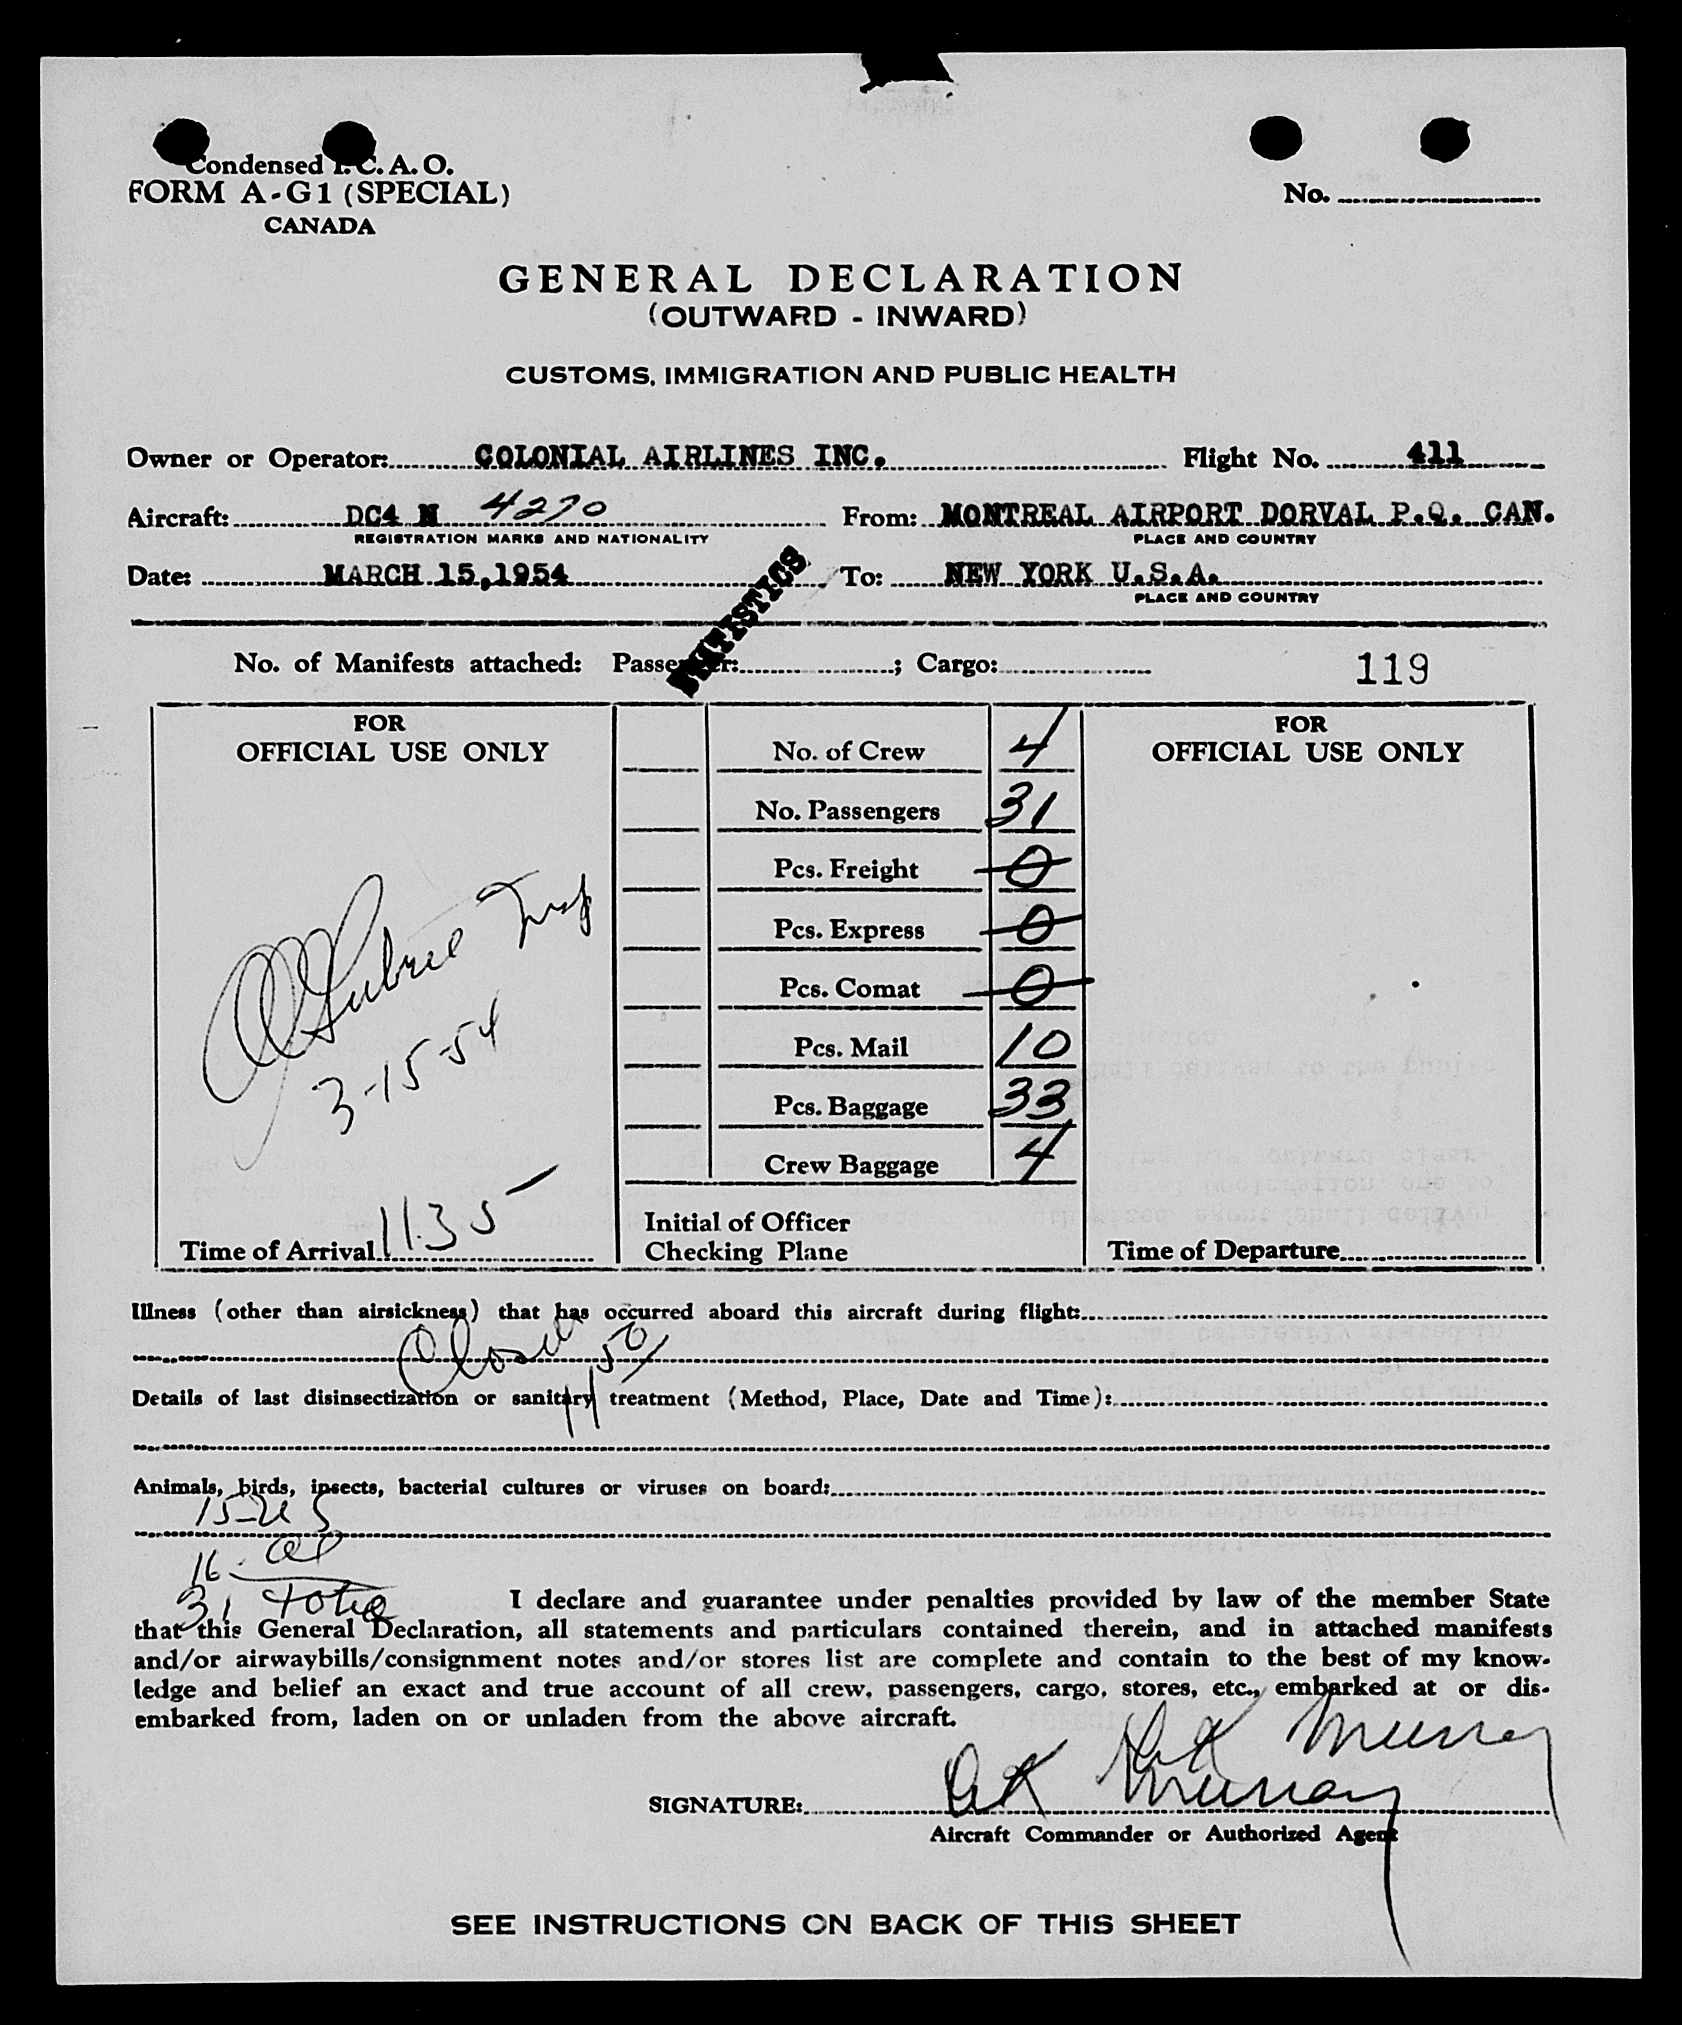 Condensed I. C. A. O.
FORM A-G1 (SPECIAL)
CANADA
No.
GENERAL DECLARATION
(OUTWARD - INWARD)
CUSTOMS, IMMIGRATION AND PUBLIC HEALTH
Owner or Operator: COLONIAL AIRLINES INC. Flight No. 411
Aircraft: DC4 N 4270 From: MONTREAL AIRPORT DORVAL P.Q. CAN.
REGISTRATION MARKS AND NATIONALITY PLACE AND COUNTRY
Date: MARCH 15,1954 To: NEW YORK U.S.A.
PLACE AND COUNTRY
STATISTICS
No. of Manifests attached: Passenger: ; Cargo: 119
FOR
OFFICIAL USE ONLY
3-15-54
Time of Arrival 11.35
No. of Crew 4
No. Passengers 31
Pcs. Freight 0
Pcs. Express 0
Pcs. Comat 0
Pcs. Mail 10
Pcs. Baggage 33
Crew Baggage 4
Initial of Officer
Checking Plane
FOR
OFFICIAL USE ONLY
Time of Departure
Illness (other than airsickness) that has occurred aboard this aircraft during flight:
Closed 1150
Details of last disinsectization or sanitary treatment (Method, Place, Date and Time):
Animals, birds, insects, bacterial cultures or viruses on board:
15-US
16-
31 Total
I declare and guarantee under penalties provided by law of the member State
that this General Declaration, all statements and particulars contained therein, and in attached manifests
and/or airwaybills/consignment notes and/or stores list are complete and contain to the best of my know-
ledge and belief an exact and true account of all crew, passengers, cargo, stores, etc., embarked at or dis-
embarked from, laden on or unladen from the above aircraft.
Murray
SIGNATURE: Murray
Aircraft Commander or Authorized Agent
SEE INSTRUCTIONS ON BACK OF THIS SHEET